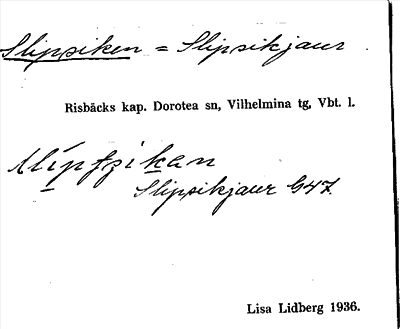 Slipsiken = Slipsikjaur.
Risbäcks kap. Dorotea sn, Vilhelmina tg, Vbt. l.
Slipsikjaur G47.
Lisa Lidberg 1936.